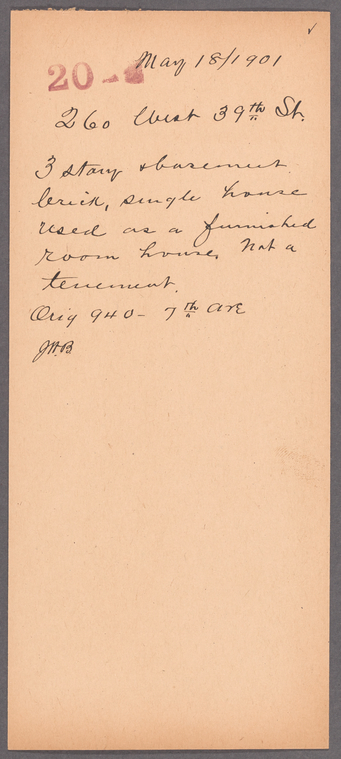 May 18/1901
20-
260 West 39th St.
3 story & basement
brick, single house
used as a furnished
room house, Not a
tenement.
Orig 940 - 7th Ave
JHB